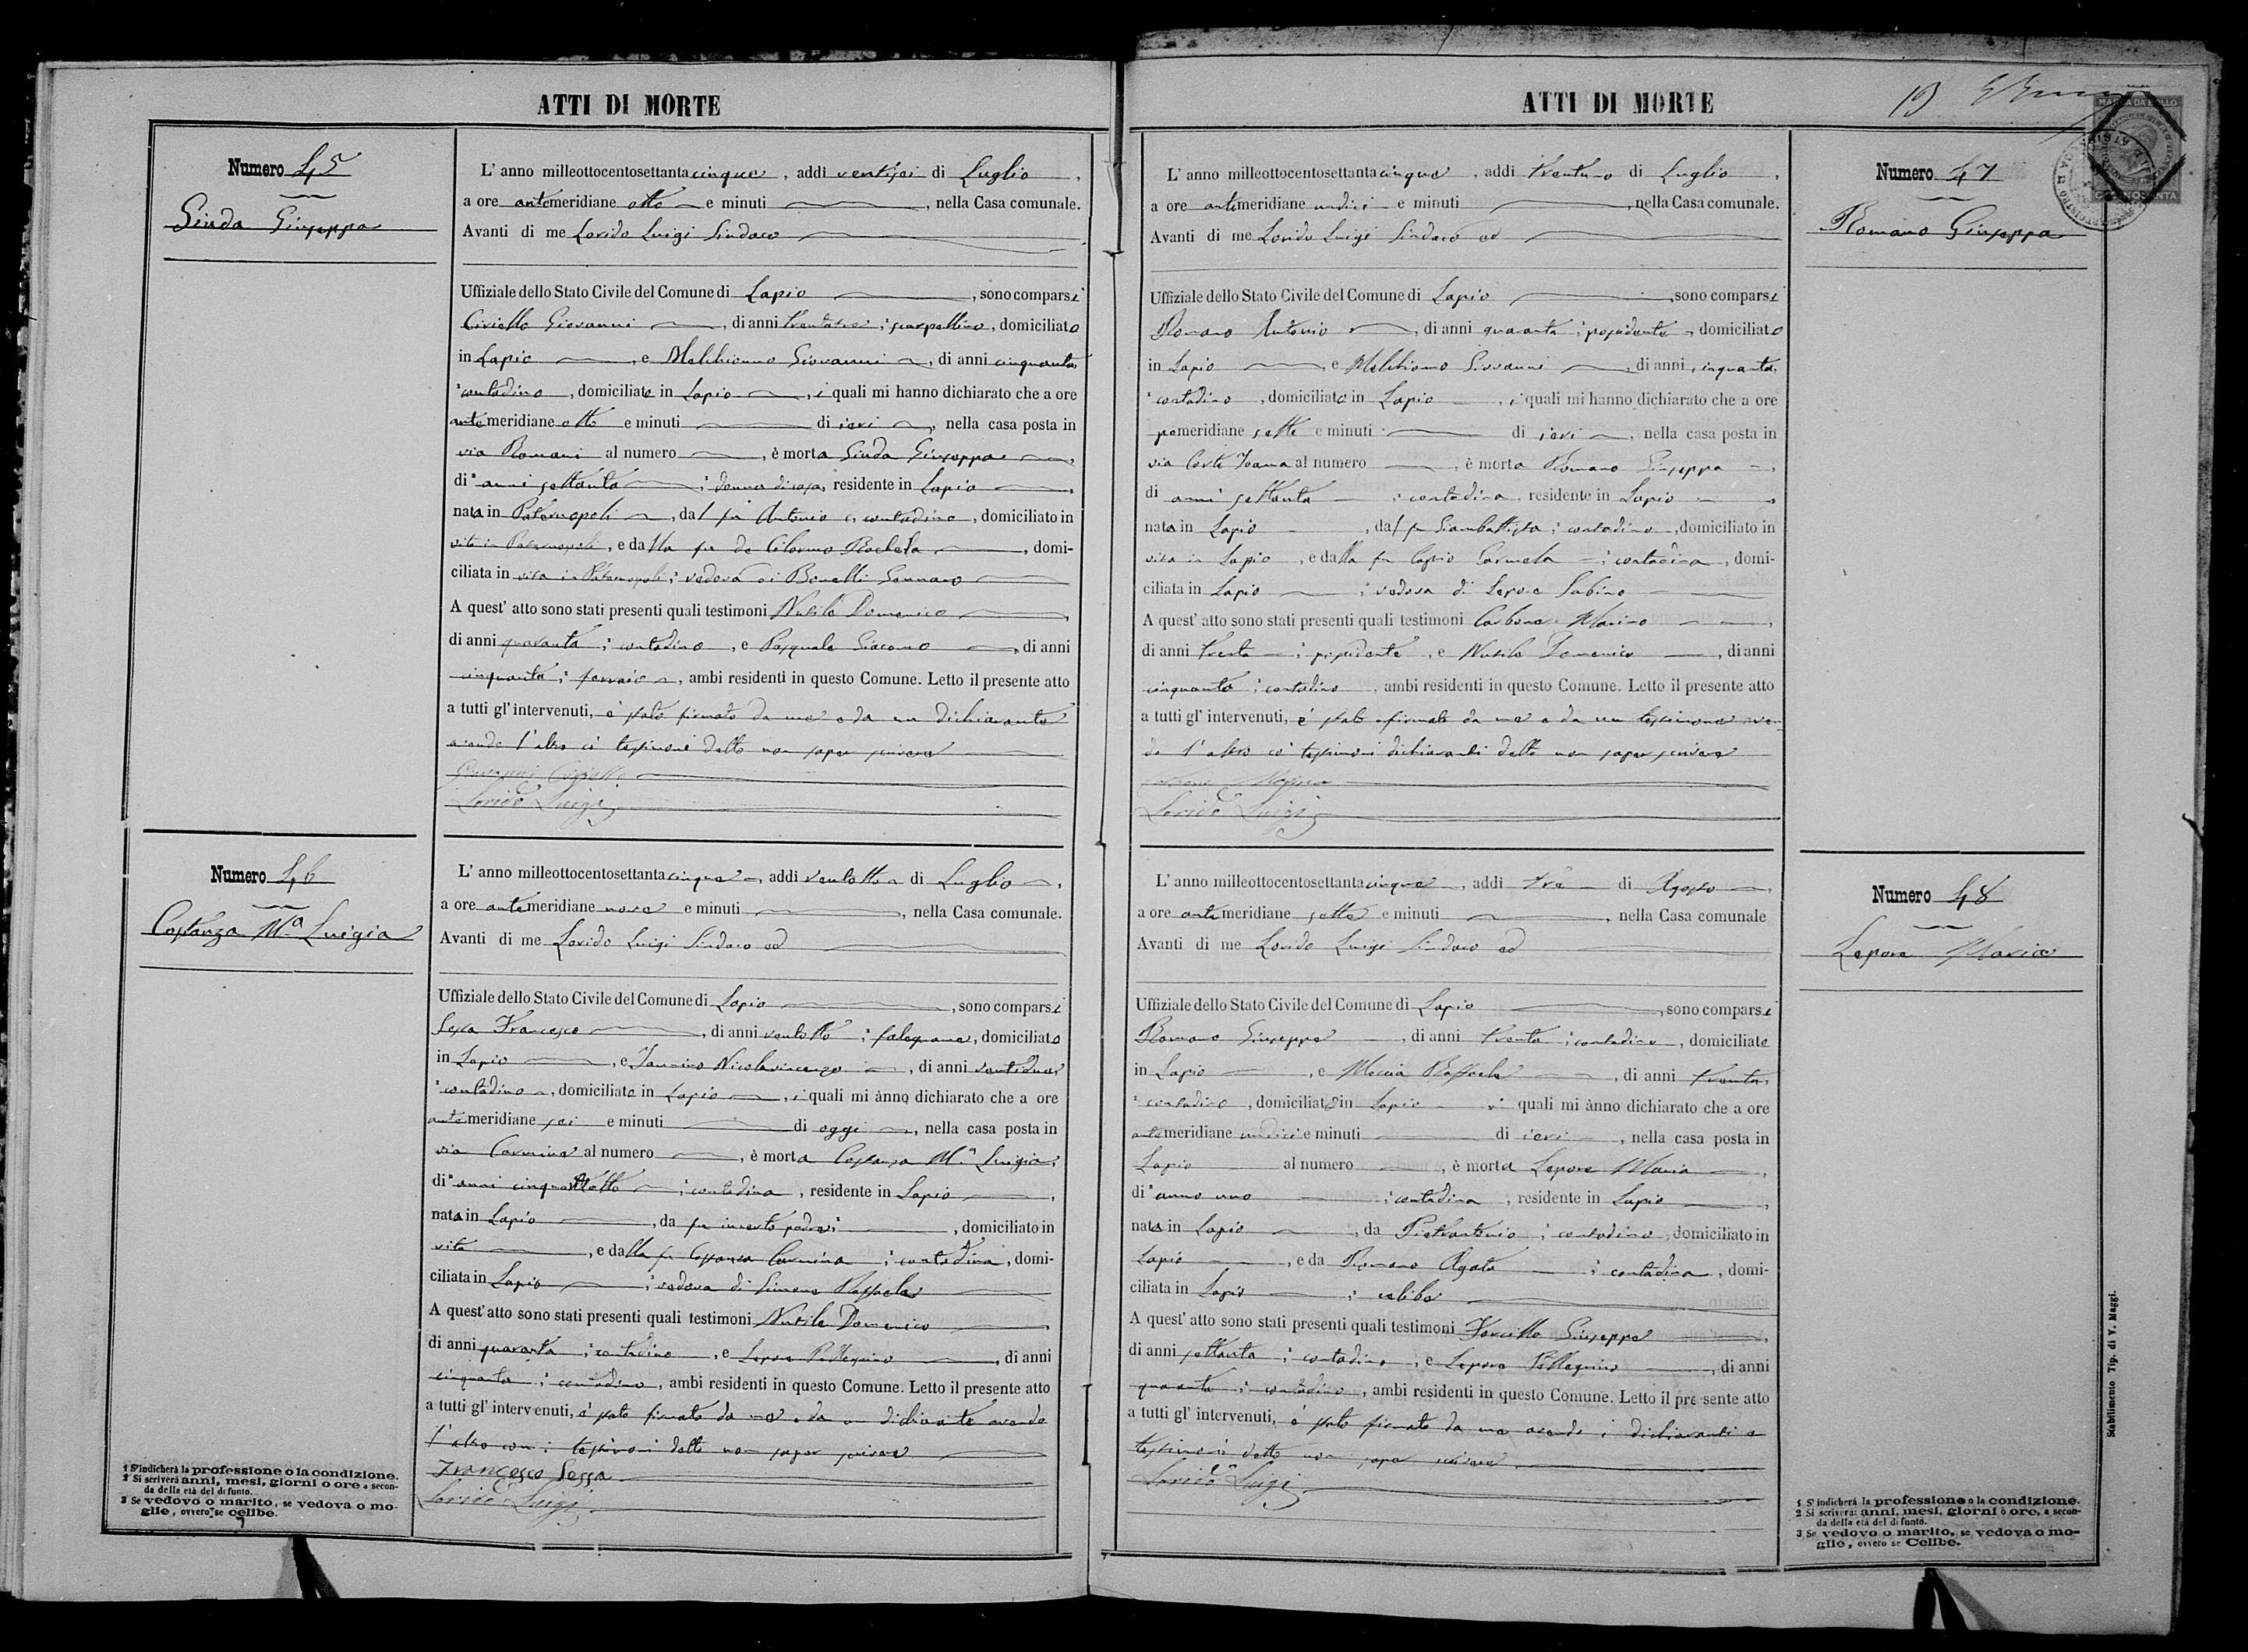 ATTI DI MORTE
Numero 45
Ginda Giuseppa
L' anno milleottocentosettantacinque, addì ventisei di Luglio,
a ore antemeridiane otto e minuti, nella Casa comunale.
Avanti di me Lorido Luigi Sindaco
Uffiziale dello Stato Civile del Comune di Lapio, sono comparsi
Ciriello Giovanni, di anni trentatre; scarpellino, domiciliato
in Lapio, e Melchionno Giovanni, di anni cinquanta,
contadino, domiciliato in Lapio, i quali mi hanno dichiarato che a ore
antemeridiane otto e minuti di ieri, nella casa posta in
via Romani al numero, è morta Ginda Giuseppa,
di anni settanta; donna di casa, residente in Lapio,
nata in Paternopoli, dal fu Antonio, contadino, domiciliato in
vita in Paternopoli, e dalla fu de Rachela, domi-
ciliata in vita in Paternopoli; vedova di Bonelli Gennaro
A quest' atto sono stati presenti quali testimoni Nusile Domenico,
di anni quaranta; contadino, e Pasquale Giacomo, di anni
cinquanta; ferraio, ambi residenti in questo Comune. Letto il presente atto
a tutti gl' intervenuti, è stato firmato da me e da un dichiarante
avendo l'altro co' testimoni detto non saper scrivere
Giovanni Ciriello
Lorido Luigi
Numero 46
Costanza M.a Luigia
L' anno milleottocentosettantacinque, addì ventotto di Luglio,
a ore antemeridiane nove e minuti, nella Casa comunale.
Avanti di me Lorido Luigi Sindaco ed
Uffiziale dello Stato Civile del Comune di Lapio, sono comparsi
Sessa Francesco, di anni ventotto; falegname, domiciliato
in Lapio, e Iannino Nicolavincenzo, di anni ventidue,
contadino, domiciliato in Lapio, i quali mi ànno dichiarato che a ore
antemeridiane sei e minuti di oggi, nella casa posta in
via Carmine al numero, è morta Costanza M.a Luigia,
di anni cinquantotto; contadina, residente in Lapio,
nata in Lapio, da fu incerto padre;, domiciliato in
vita, e dalla fu Costanza Carmina; contadina, domi-
ciliata in Lapio; vedova di Simone Raffaele
A quest' atto sono stati presenti quali testimoni Nusile Domenico
di anni quaranta; contadino, e Lepore Pellegrino, di anni
cinquanta; contadino, ambi residenti in questo Comune. Letto il presente atto
a tutti gl' intervenuti, è stato firmato da me e da un dichiarante avendo
l'altro con i testimoni detto non saper scrivere
Francesco Sessa
Lorido Luigi
1 S'indicherà la professione o la condizione.
2 Si scriverà anni, mesi, giorni o ore a secon-
da della età del defunto.
3 Se vedovo o marito, se vedova o mo-
glie, ovvero se celibe.
ATTI DI MORTE
19
MARCA DA BOLLO
Numero 47
Romano Giuseppa
L' anno milleottocentosettantacinque, addì trentuno di Luglio,
a ore antemeridiane undici e minuti, nella Casa comunale.
Avanti di me Lorido Luigi Sindaco ed
Uffiziale dello Stato Civile del Comune di Lapio, sono comparsi
Romano Antonio, di anni quaranta; possidente, domiciliato
in Lapio, e Melchionno Giovanni, di anni cinquanta,
contadino, domiciliato in Lapio, i quali mi hanno dichiarato che a ore
pomeridiane sette e minuti di ieri, nella casa posta in
via al numero, è morta Romano Giuseppa,
di anni settanta; contadina, residente in Lapio,
nata in Lapio, dal fu Giambattista; contadino, domiciliato in
vita in Lapio, e dalla fu Carmela; contadina, domi-
ciliata in Lapio; vedova di Lepore Sabino
A quest' atto sono stati presenti quali testimoni Carbone Marino,
di anni trenta; possidente, e Nusile Domenico, di anni
cinquanta; contadino, ambi residenti in questo Comune. Letto il presente atto
a tutti gl' intervenuti, è stato firmato da me e da un testimone aven-
do l'altro co' testimoni dichiaranti detto non saper scrivere
Carbone Marino
Lorido Luigi
Numero 48
Lepore Maria
L' anno milleottocentosettantacinque, addì tre di Agosto,
a ore antemeridiane sette e minuti, nella Casa comunale
Avanti di me Lorido Luigi Sindaco ed
Uffiziale dello Stato Civile del Comune di Lapio, sono comparsi
Romano Giuseppe, di anni trenta; contadino, domiciliato
in Lapio, e Meccia Raffaele, di anni trenta,
contadino, domiciliato in Lapio i quali mi ànno dichiarato che a ore
antemeridiane undici e minuti di ieri, nella casa posta in
Lapio al numero, è morta Lepore Maria,
di anno uno; contadina, residente in Lapio,
nata in Lapio, da Pietrantonio; contadino, domiciliato in
Lapio, e da Romano Agata; contadina, domi-
ciliata in Lapio; celibe
A quest' atto sono stati presenti quali testimoni Forcillo Giuseppe,
di anni settanta; contadino, e Lepore Pellegrino, di anni
quaranta; contadino, ambi residenti in questo Comune. Letto il presente atto
a tutti gl' intervenuti, è stato firmato da me avendo i dichiaranti e
testimoni detto non saper scrivere.
Lorido Luigi
1 S' indicherà la professione o la condizione.
2 Si scriverà: anni, mesi, giorni o ore, a secon-
da della età del defunto.
3 Se vedovo o marito, se vedova o mo-
glie, ovvero se Celibe.
Stabilimento Tip. di V. Maggi.